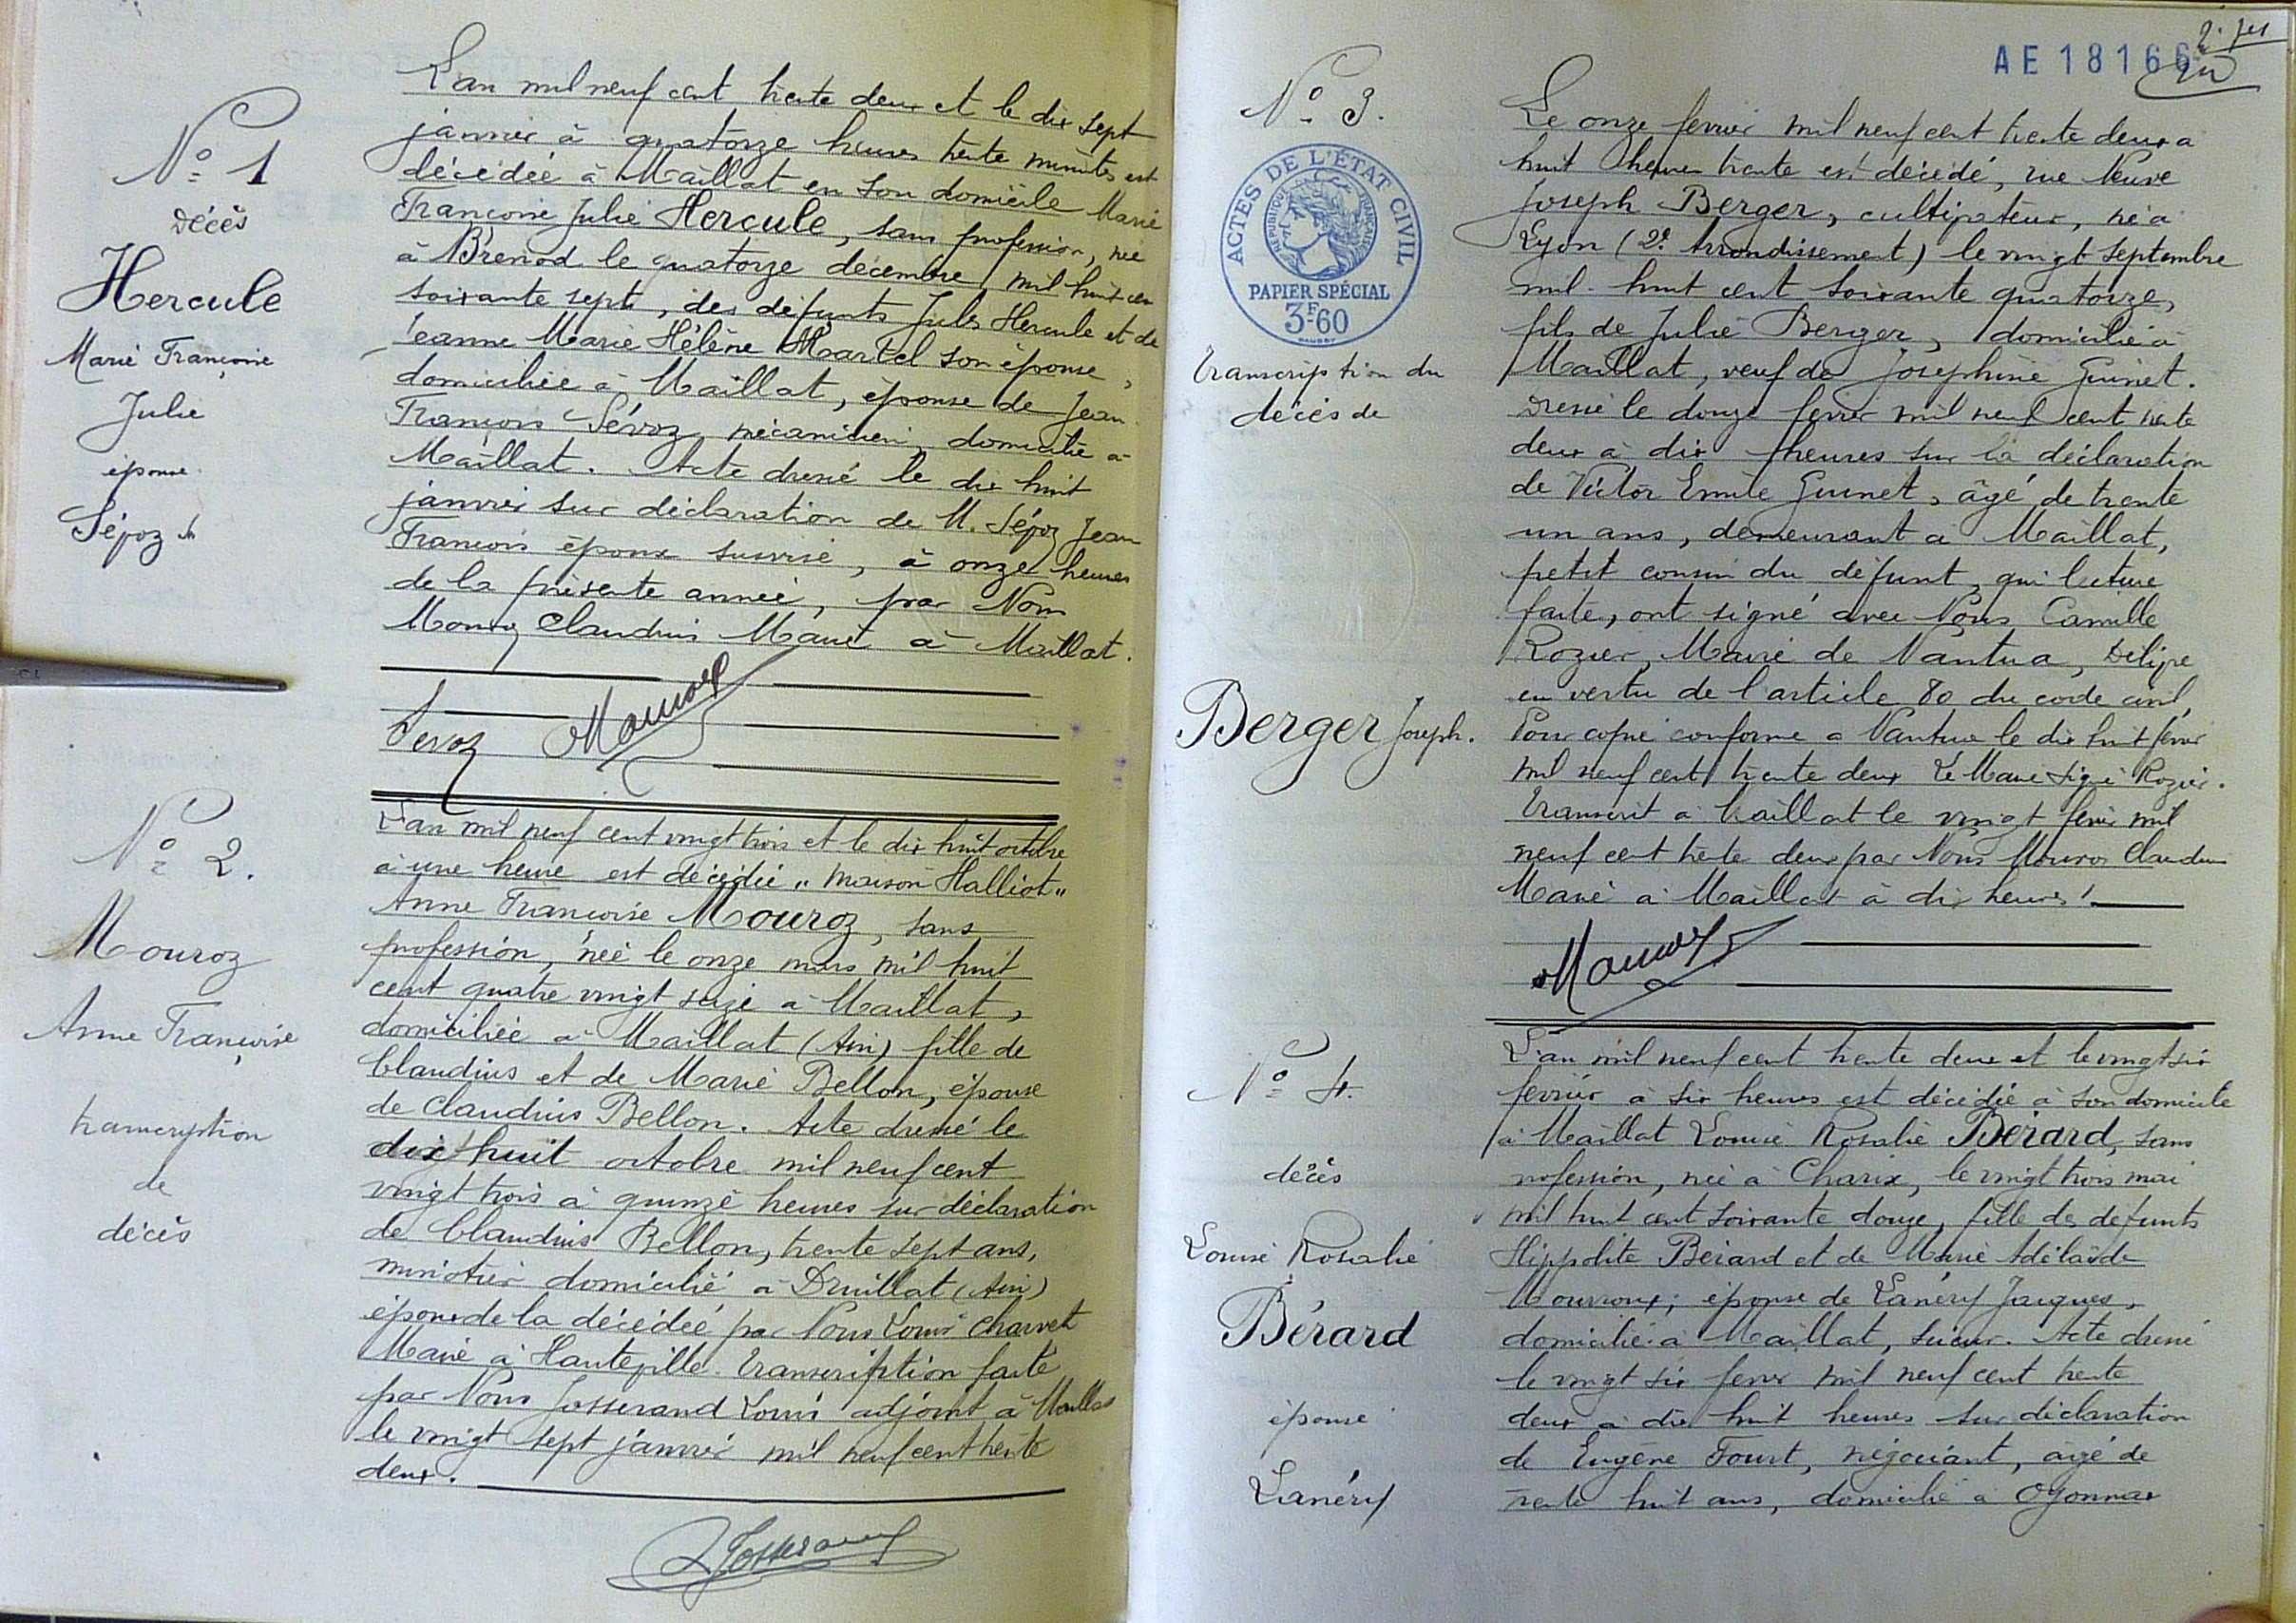 N° 1
Décès
Hercule
Marie Françoise
Julie
épouse
Sévoz
L'an mil neuf cent trente deux et le dix sept
janvier à quatorze heures trente minutes est
décédée à Maillat en son domicile Marie
Françoise Julie Hercule, sans profession, née
à Brénod le quatorze décembre mil huit cent
soixante sept, des défunts Jules Hercule et de
Jeanne Marie Hélène Martel son épouse,
domiciliée à Maillat, épouse de Jean
François Sévoz, mécanicien, domicilié à
Maillat. Acte dressé le dix huit
janvier sur déclaration de M. Sévoz Jean
François époux survisé, à onze heures
de la présente année, par Nous
Mouroz Claudius Maire à Maillat.
Sevoz Mouroz
N° 2.
Mouroz
Anne Françoise
transcription
de
décès
L'an mil neuf cent vingt trois et le dix huit octobre
à une heure est décédée "maison Halliot"
Anne Françoise Mouroz, sans
profession, née le onze mars mil huit
cent quatre vingt seize à Maillat,
domiciliée à Maillat (Ain) fille de
Claudius et de Marie Bellon, épouse
de Claudius Bellon. Acte dressé le
dix huit octobre mil neuf cent
vingt trois à quinze heures sur déclaration
de Claudius Bellon, trente sept ans,
minotier domicilié à Druillat (Ain)
époux de la décédée par Nous Louis Charvet
Maire à Hauteville. Transcription faite
par Nous Josserand Louis adjoint à Maillat
le vingt sept janvier mil neuf cent trente
deux.
L Josserand
AE 18166
N° 3.
ACTES DE L'ÉTAT CIVIL
RÉPUBLIQUE FRANÇAISE
PAPIER SPÉCIAL
3F.60
Transcription du
décès de
Berger Joseph.
Le onze fevrier mil neuf cent trente deux à
huit heures trente est décédé, rue Neuve
Joseph Berger, cultivateur, né à
Lyon (2e Arrondissement) le vingt septembre
mil huit cent soixante quatorze,
fils de Julie Berger, domicilié à
Maillat, veuf de Joséphine Guinet.
Dressé le douze fevrier mil neuf cent trente
deux à dix heures sur la déclaration
de Victor Emile Guinet, âgé de trente
un ans, demeurant à Maillat,
petit cousin du défunt, qui lecture
faite, ont signé avec Nous Camille
Rozier, Maire de Nantua, Délivré
en vertu de l'article 80 du code civil,
Pour copie conforme à Nantua le dix huit fevrier
mil neuf cent trente deux Le Maire signé Rozier.
Transcrit à Maillat le vingt fevrier mil
neuf cent trente deux par Nous Mouroz Claudius
Maire à Maillat à dix heures.
Mouroz
N° 4.
décès
Louise Rosalie
Bérard
épouse
Lanéry
L'an mil neuf cent trente deux et le vingt six
fevrier à six heures est décédée à son domicile
à Maillat Louise Rosalie Bérard, sans
profession, née à Charix, le vingt trois mai
mil huit cent soixante douze, fille des défunts
Hippolite Bérard et de Marie Adélaïde
Mourroux; épouse de Lanéry Jacques,
domicilié à Maillat, scieur. Acte dressé
le vingt six fevrier mil neuf cent trente
deux à dix huit heures sur déclaration
de Eugène Tourt, négociant, âgé de
trente huit ans, domicilié à Oyonnax